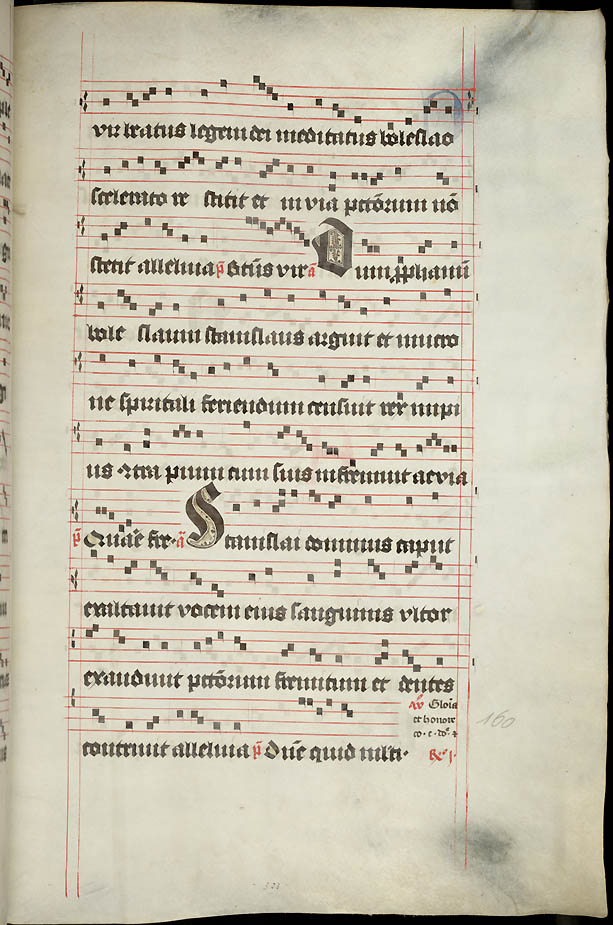 vir beatus legem dei meditatus boleslao
scelerato re stitit et in via pctōrum nō
stetit alleluia p̄ Btūs vir a Dum
bole slaum stanislaus arguit et mucro
ne spirituali feriendum censuit rex impi
us ⁊tra pium cum suis infremuit aevia
p̄ Quare fre· a Stanislai dominus caput
exaltavit vocem eius sanguinis ultor
exaudivit pctōrum fremitum et dentes
contrivit alleluia p̄ Dn̄e quid m̄lti·
Gloīa
et honore
160